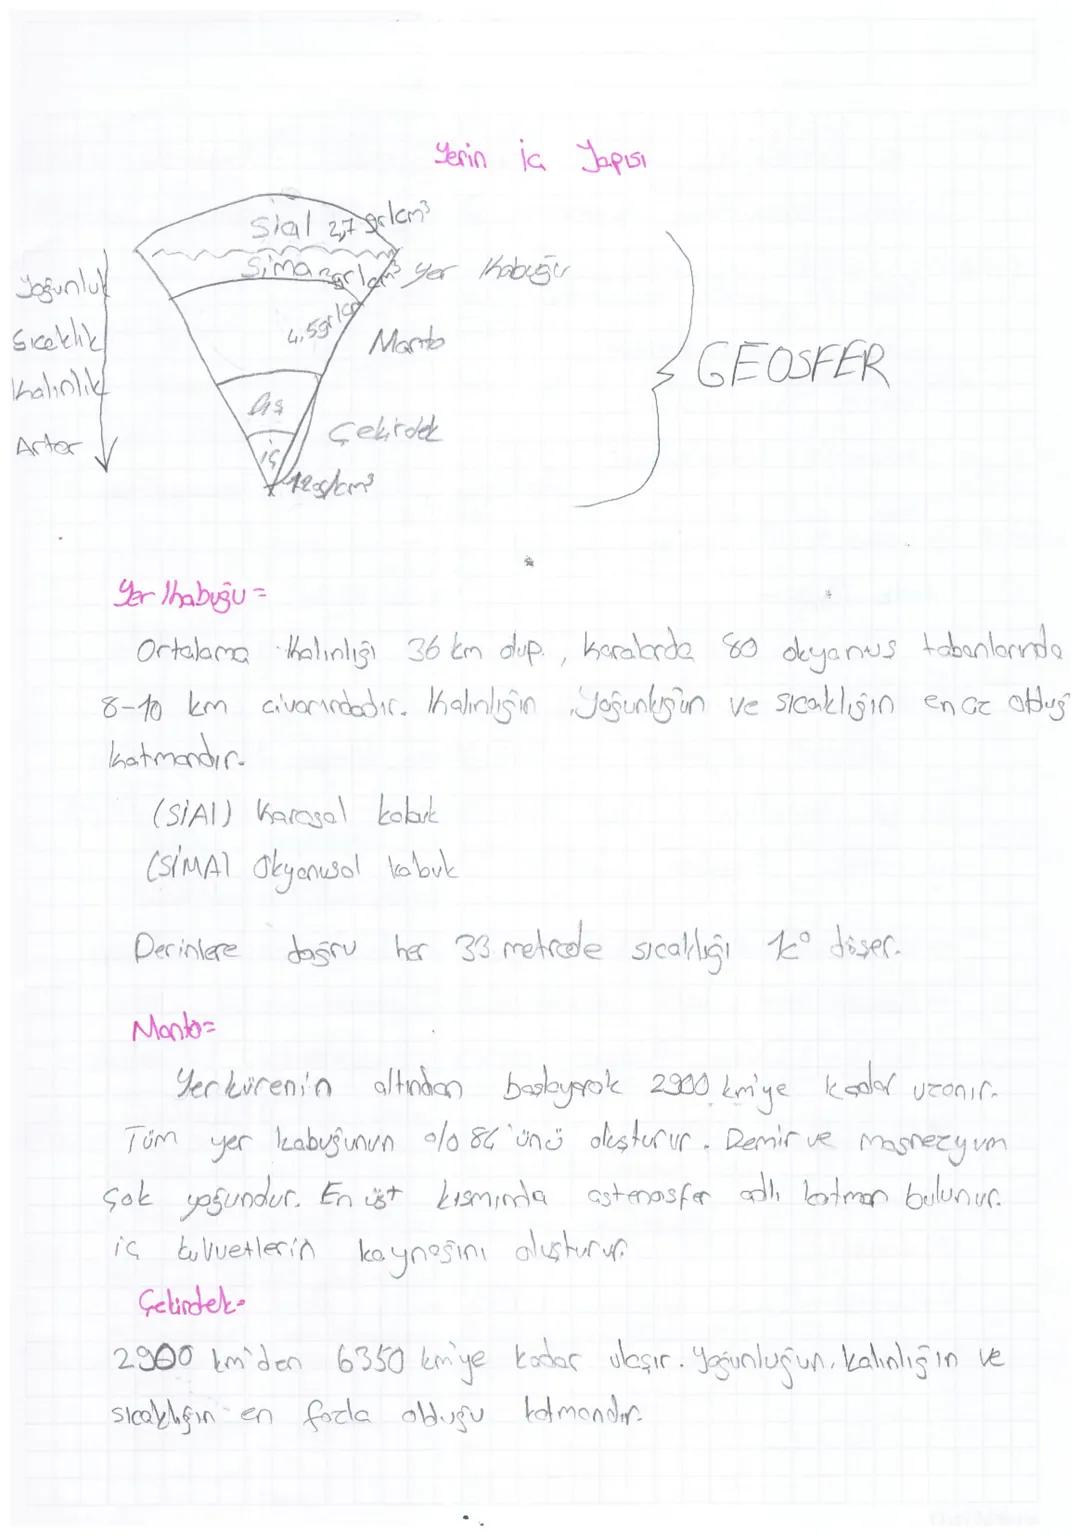 Yerin iç Yapısı
Sial 2,7 gr/cm³
Sima 3gr/cm³ yer Kabuğu
Yoğunluk
Sıcaklık
Kalınlık
Artar
4,5gr/cm
Manto
GEOSFER
dış
Çekirdek
iç
12g/cm³
Yer Kabuğu =
Ortalama Kalınlığı 36 km olup, karalarda 80 okyanus tabanlarında
8-10 km civarındadır. Kalınlığın, Yoğunluğun ve sıcaklığın en az olduğ
katmandır.
(SİAl) Karasal kabuk
(SİMA) Okyanusal kabuk
Derinlere doğru her 33 metrede sıcaklığı 1c° düşer.
Manto=
Yerkürenin altından başlayarak 2900 km'ye kadar uzanır.
Tüm yer kabuğunun %86'ünü oluşturur. Demir ve magnezyum
çok yoğundur. En üst kısmında astenosfer adlı katman bulunur.
iç kuvvetlerin kaynağını oluşturur.
Çekirdek=
2900 km'den 6350 km'ye kadar ulaşır. Yoğunluğun, kalınlığın ve
sıcaklığın en fazla olduğu katmandır.